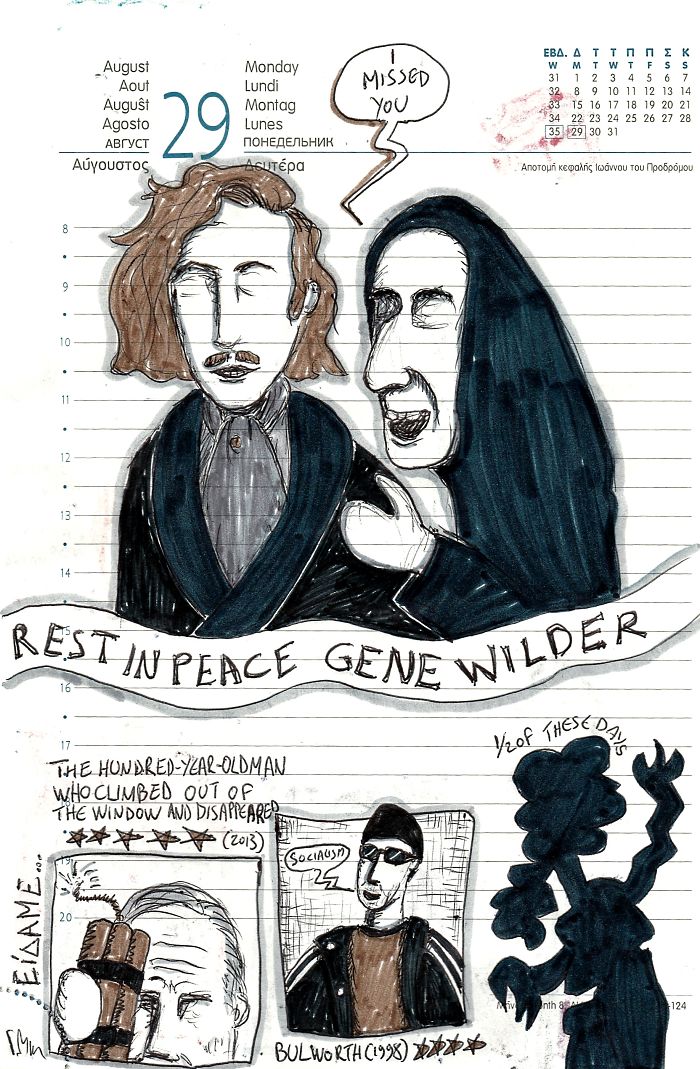 August
Aout
Augusŝt
Agosto
АВГУСТ
Αύγουστος
29
Monday
Lundi
Montag
Lunes
ПОНЕДЕЛЬНИК
Δευτέρα
I
MISSED
YOU
ΕΒΔ. Δ Τ Τ Π Π Σ Κ
W M T W T F S S
31 1 2 3 4 5 6 7
32 8 9 10 11 12 13 14
33 15 16 17 18 19 20 21
34 22 23 24 25 26 27 28
35 29 30 31
Αποτομή κεφαλής Ιωάννου του Προδρόμου
8
9
10
11
12
13
14
15
REST IN PEACE GENE WILDER
16
17
1/2 OF THESE DAYS
THE HUNDRED-YEAR-OLD MAN
WHO CLIMBED OUT OF
THE WINDOW AND DISAPPEARED
(2013)
19
ΕΊΔΑΜΕ...
20
SOCIALISM
BULWORTH (1998)